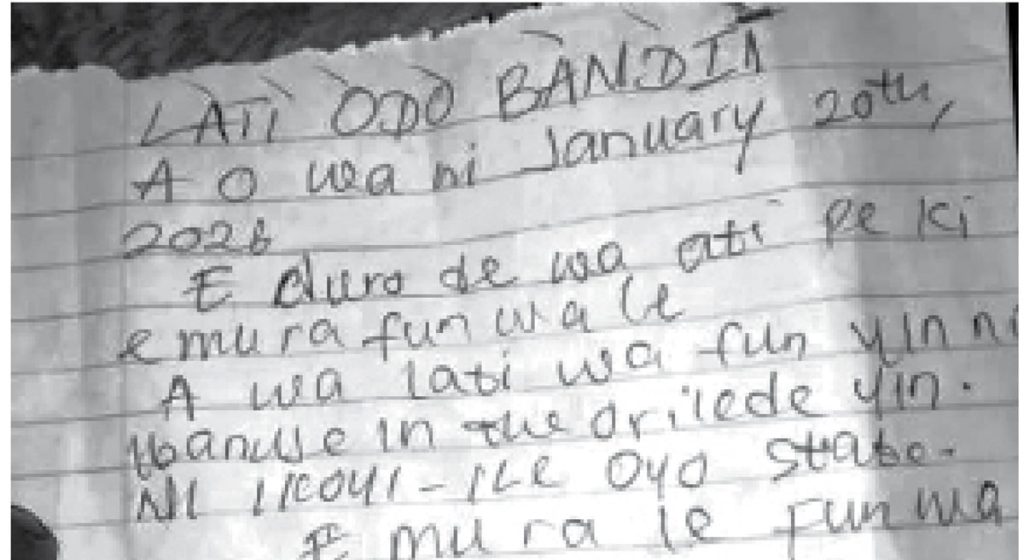 LATI ODO BANDIT
A O wa ni January 20th,
2026
E duro de wa ati pe ki
e mura fun wa le
A wa lati wa fun yin ni
in the orilede yin.
NI IKOYI-ILE OYO state.
E mu ra le Fun wa